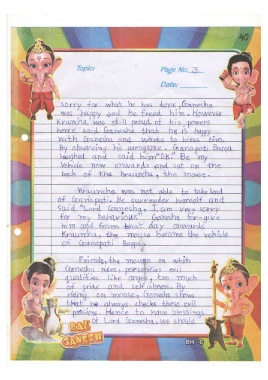 40
Topic:
Page No. 3
Date:
sorry for what he has done, Ganesha
was happy and he freed him. However
Krauncha was still proud of his powers
hence said Ganesha that he is happy
with Ganesha and wants to bless him.
By observing his arrogance, Ganapati Bappa
laughed and said him "OK." Be my
Vehicle now onwards and sat on the
back of the Krauncha, the mouse.
Krauncha was not able to take load
of Ganapati. He surrender himself and
said "Lord Ganesha, I am very sorry
for my behaviour." Ganesha forgive
him and from that day onwards
Krauncha, the mouse became the vehicle
of Ganapati Bappa.
Friends, the mouse on which
Ganesha rides, personifies evil
qualities like anger, too much
of pride and selfishness. By
riding on mouse, Ganesha shows
that he always checks these evil
passions. Hence to have blessings
of Lord Ganesha, we should
BAL
GANESH